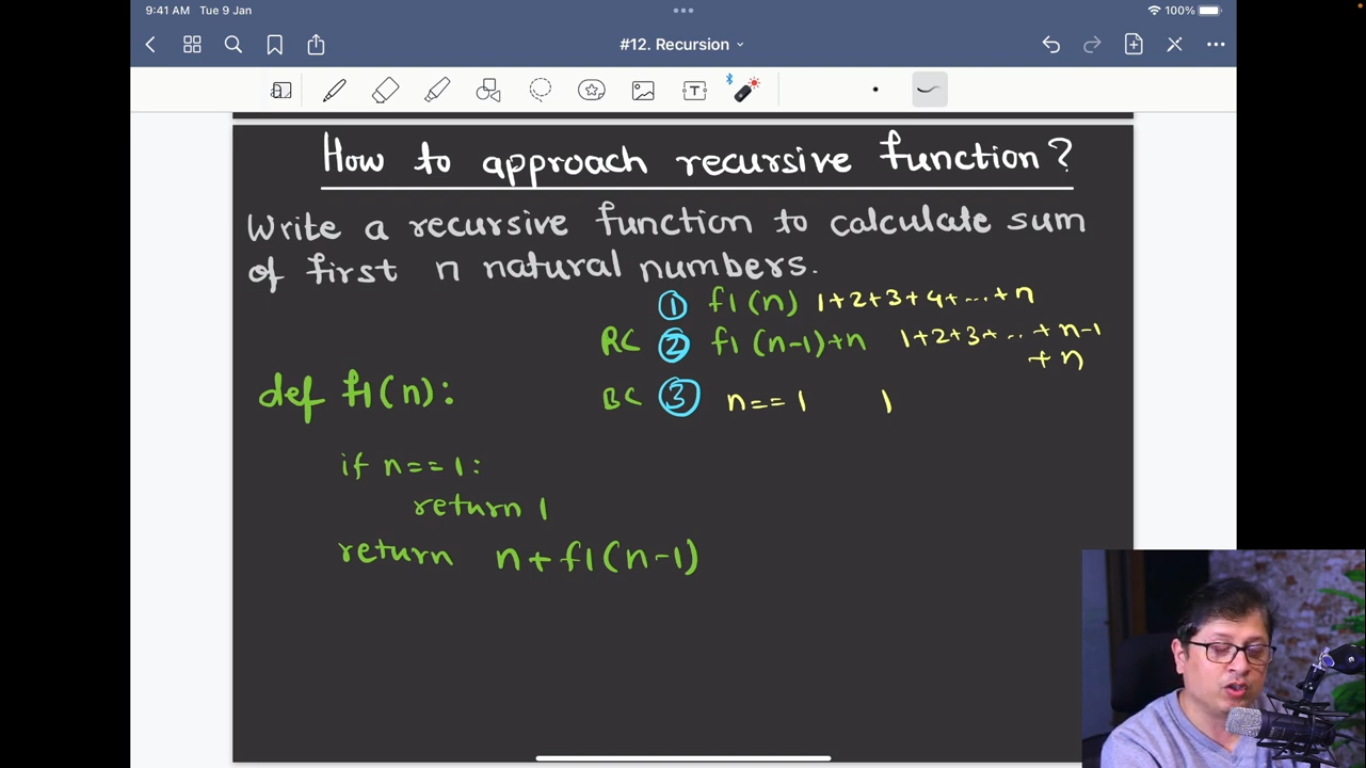 9:41 AM Tue 9 Jan
100%
#12. Recursion
T
How to approach recursive function?
Write a recursive function to calculate sum
of first n natural numbers.
① f1(n) 1+2+3+4+...+n
RC ② f1(n-1)+n 1+2+3+...+n-1
+n
def f1(n):
BC ③ n==1 1
if n==1:
return 1
return n+f1(n-1)